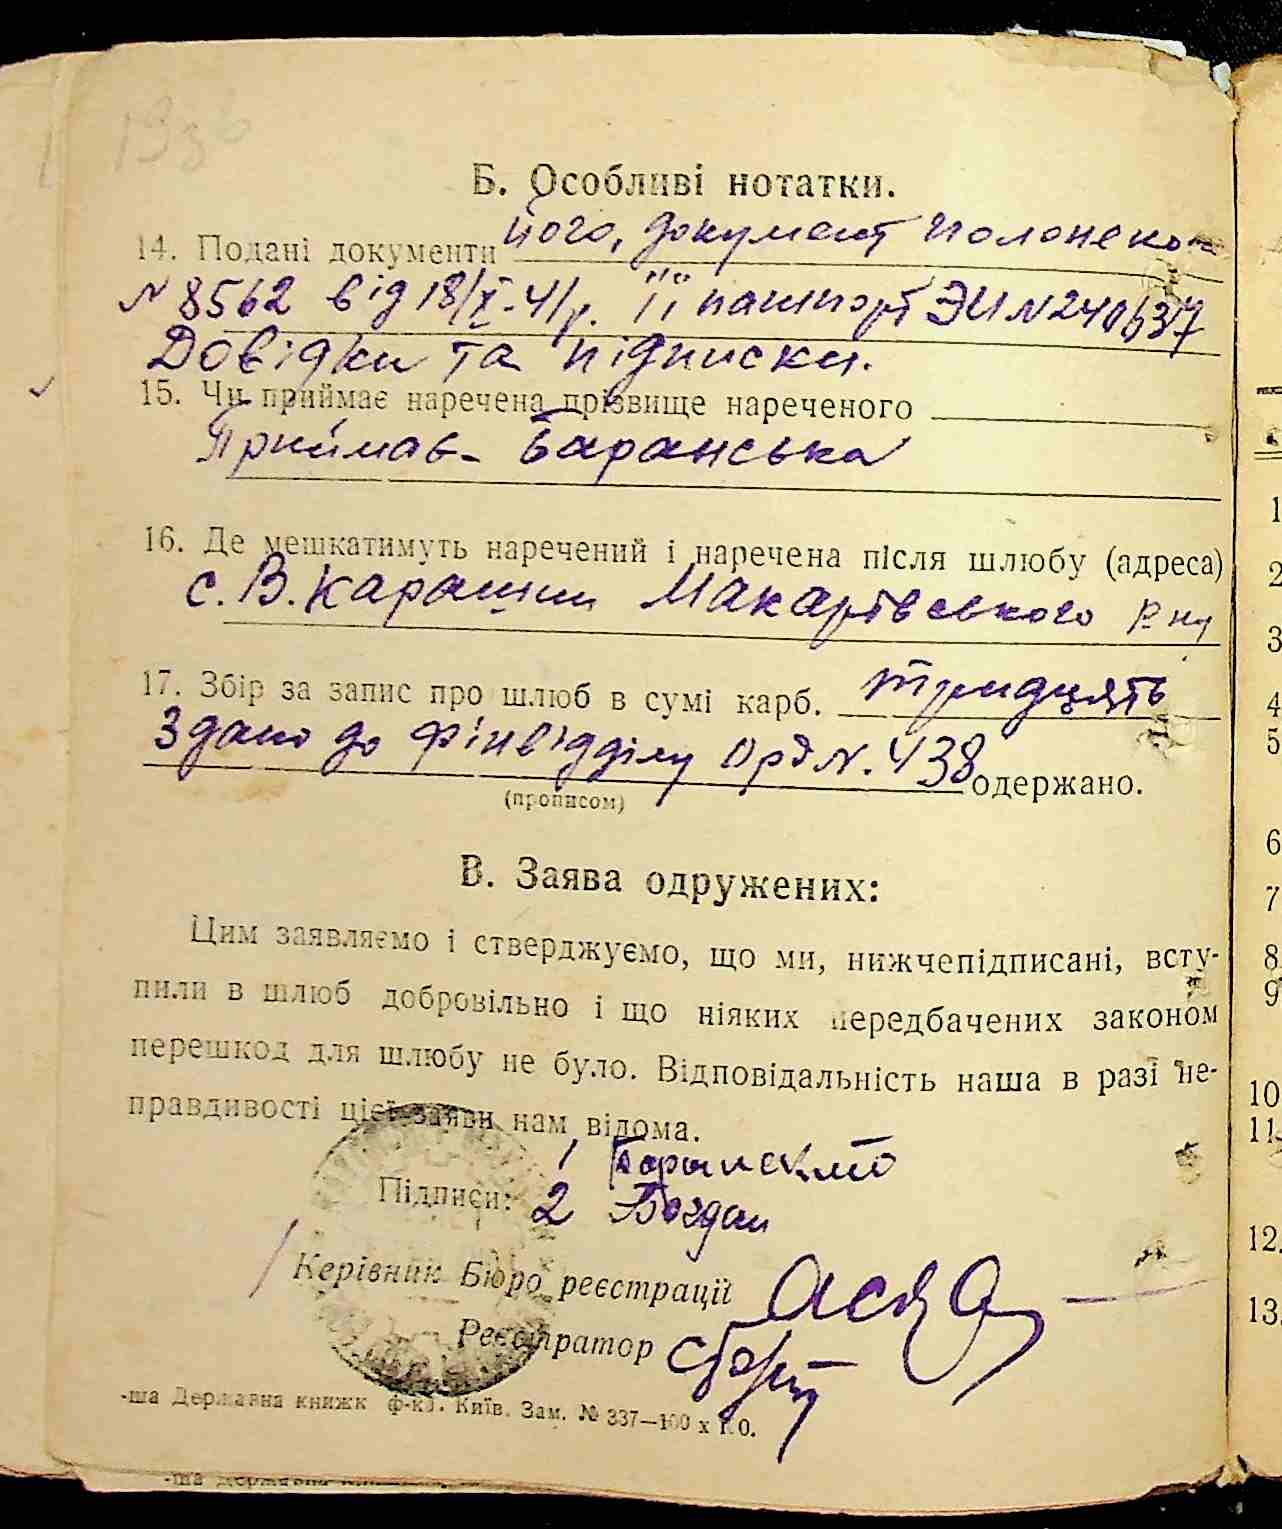 1936
Б. Особливі нотатки.
14. Подані документи його, документ
№ 8562 від 18/X-41р. Її паспорт ЭИ №
Довідки та підписки.
15. Чи приймає наречена прізвище нареченого
Приймає Баранська
16. Де мешкатимуть наречений і наречена після шлюбу (адреса)
с. В. Карашин Макарівського р-ну
17. Збір за запис про шлюб в сумі карб. тридцять
Здано до фінвідділу орд №. 438 одержано.
(прописом)
В. Заява одружених:
Цим заявляємо і стверджуємо, що ми, нижчепідписані, всту-
пили в шлюб добровільно і що ніяких передбачених законом
перешкод для шлюбу не було. Відповідальність наша в разі не-
правдивості цієї заяви нам відома.
1
Підписи: 2 Богдан
Керівник Бюро реєстрації
Реєстратор
-ша Державна книжк ф-ка. Київ. Зам. № 337—100 х
1
2
3
4
5
6
7
8
9
10
11
12.
13.